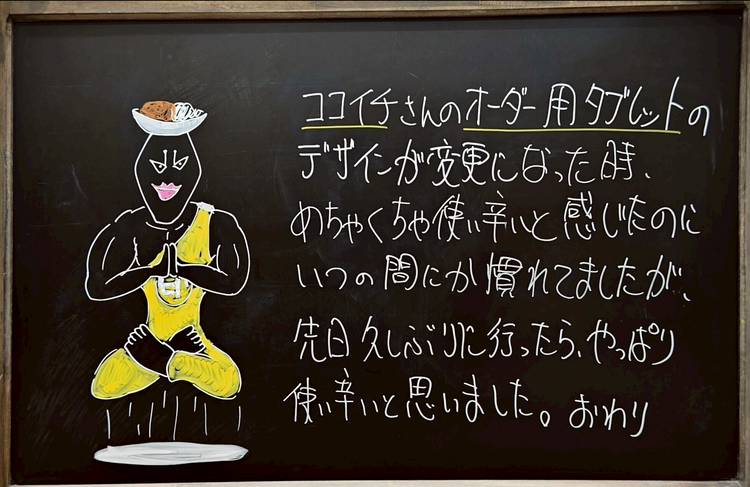 ココイチさんのオーダー用タブレットの
デザインが変更になった時、
めちゃくちゃ使い辛いと感じたのに
いつの間にか慣れてましたが、
先日久しぶりに行ったら、やっぱり
使い辛いと思いました。おわり